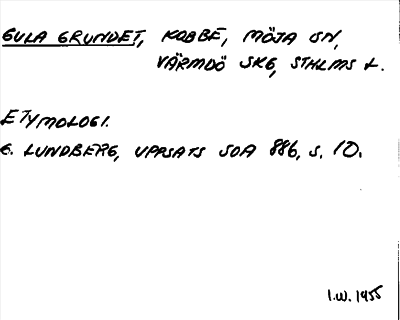 GULA GRUNDET, KOBBE, MÖJA SN,
VÄRMDÖ SKG, STHLMS L.
ETYMOLOGI.
G. LUNDBERG, UPPSATS SOA 886, S. 10.
I.W. 1955